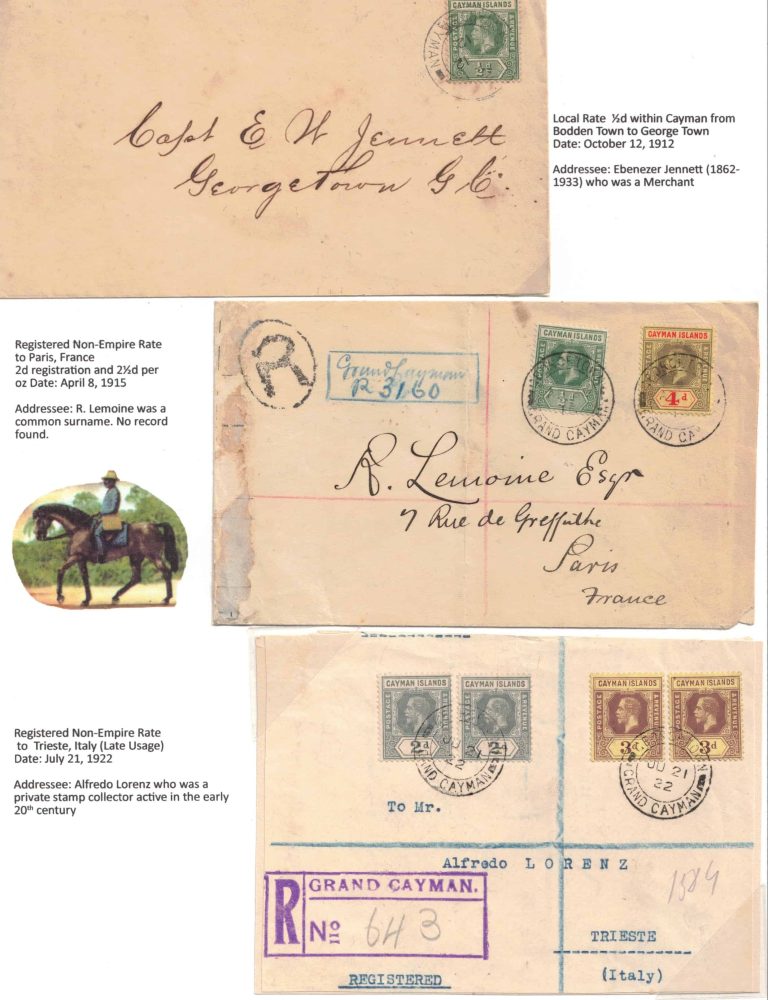 CAYMAN ISLANDS
POSTAGE
REVENUE
½d
CAYMAN
Capt E W Jennett
Georgetown G C.
Local Rate ½d within Cayman from
Bodden Town to George Town
Date: October 12, 1912
Addressee: Ebenezer Jennett (1862-
1933) who was a Merchant
Registered Non-Empire Rate
to Paris, France
2d registration and 2½d per
oz Date: April 8, 1915
Addressee: R. Lemoine was a
common surname. No record
found.
R
Grand Cayman
R 3160
CAYMAN ISLANDS
POSTAGE
½d
GRAND CAYMAN
CAYMAN ISLANDS
4d
R. Lemoine Esqr
7 Rue de Greffuthe
Paris
France
Registered Non-Empire Rate
to Trieste, Italy (Late Usage)
Date: July 21, 1922
Addressee: Alfredo Lorenz who was a
private stamp collector active in the early
20th century
CAYMAN ISLANDS
POSTAGE
2d
CAYMAN ISLANDS
& REVENUE
2d
JU 21
22
GRAND CAYMAN
CAYMAN ISLANDS
POSTAGE
3d
CAYMAN ISLANDS
& REVENUE
3d
JU 21
22
GRAND CAYMAN
To Mr.
Alfredo LORENZ
1584
R
GRAND CAYMAN.
No 643
TRIESTE
(Italy)
REGISTERED